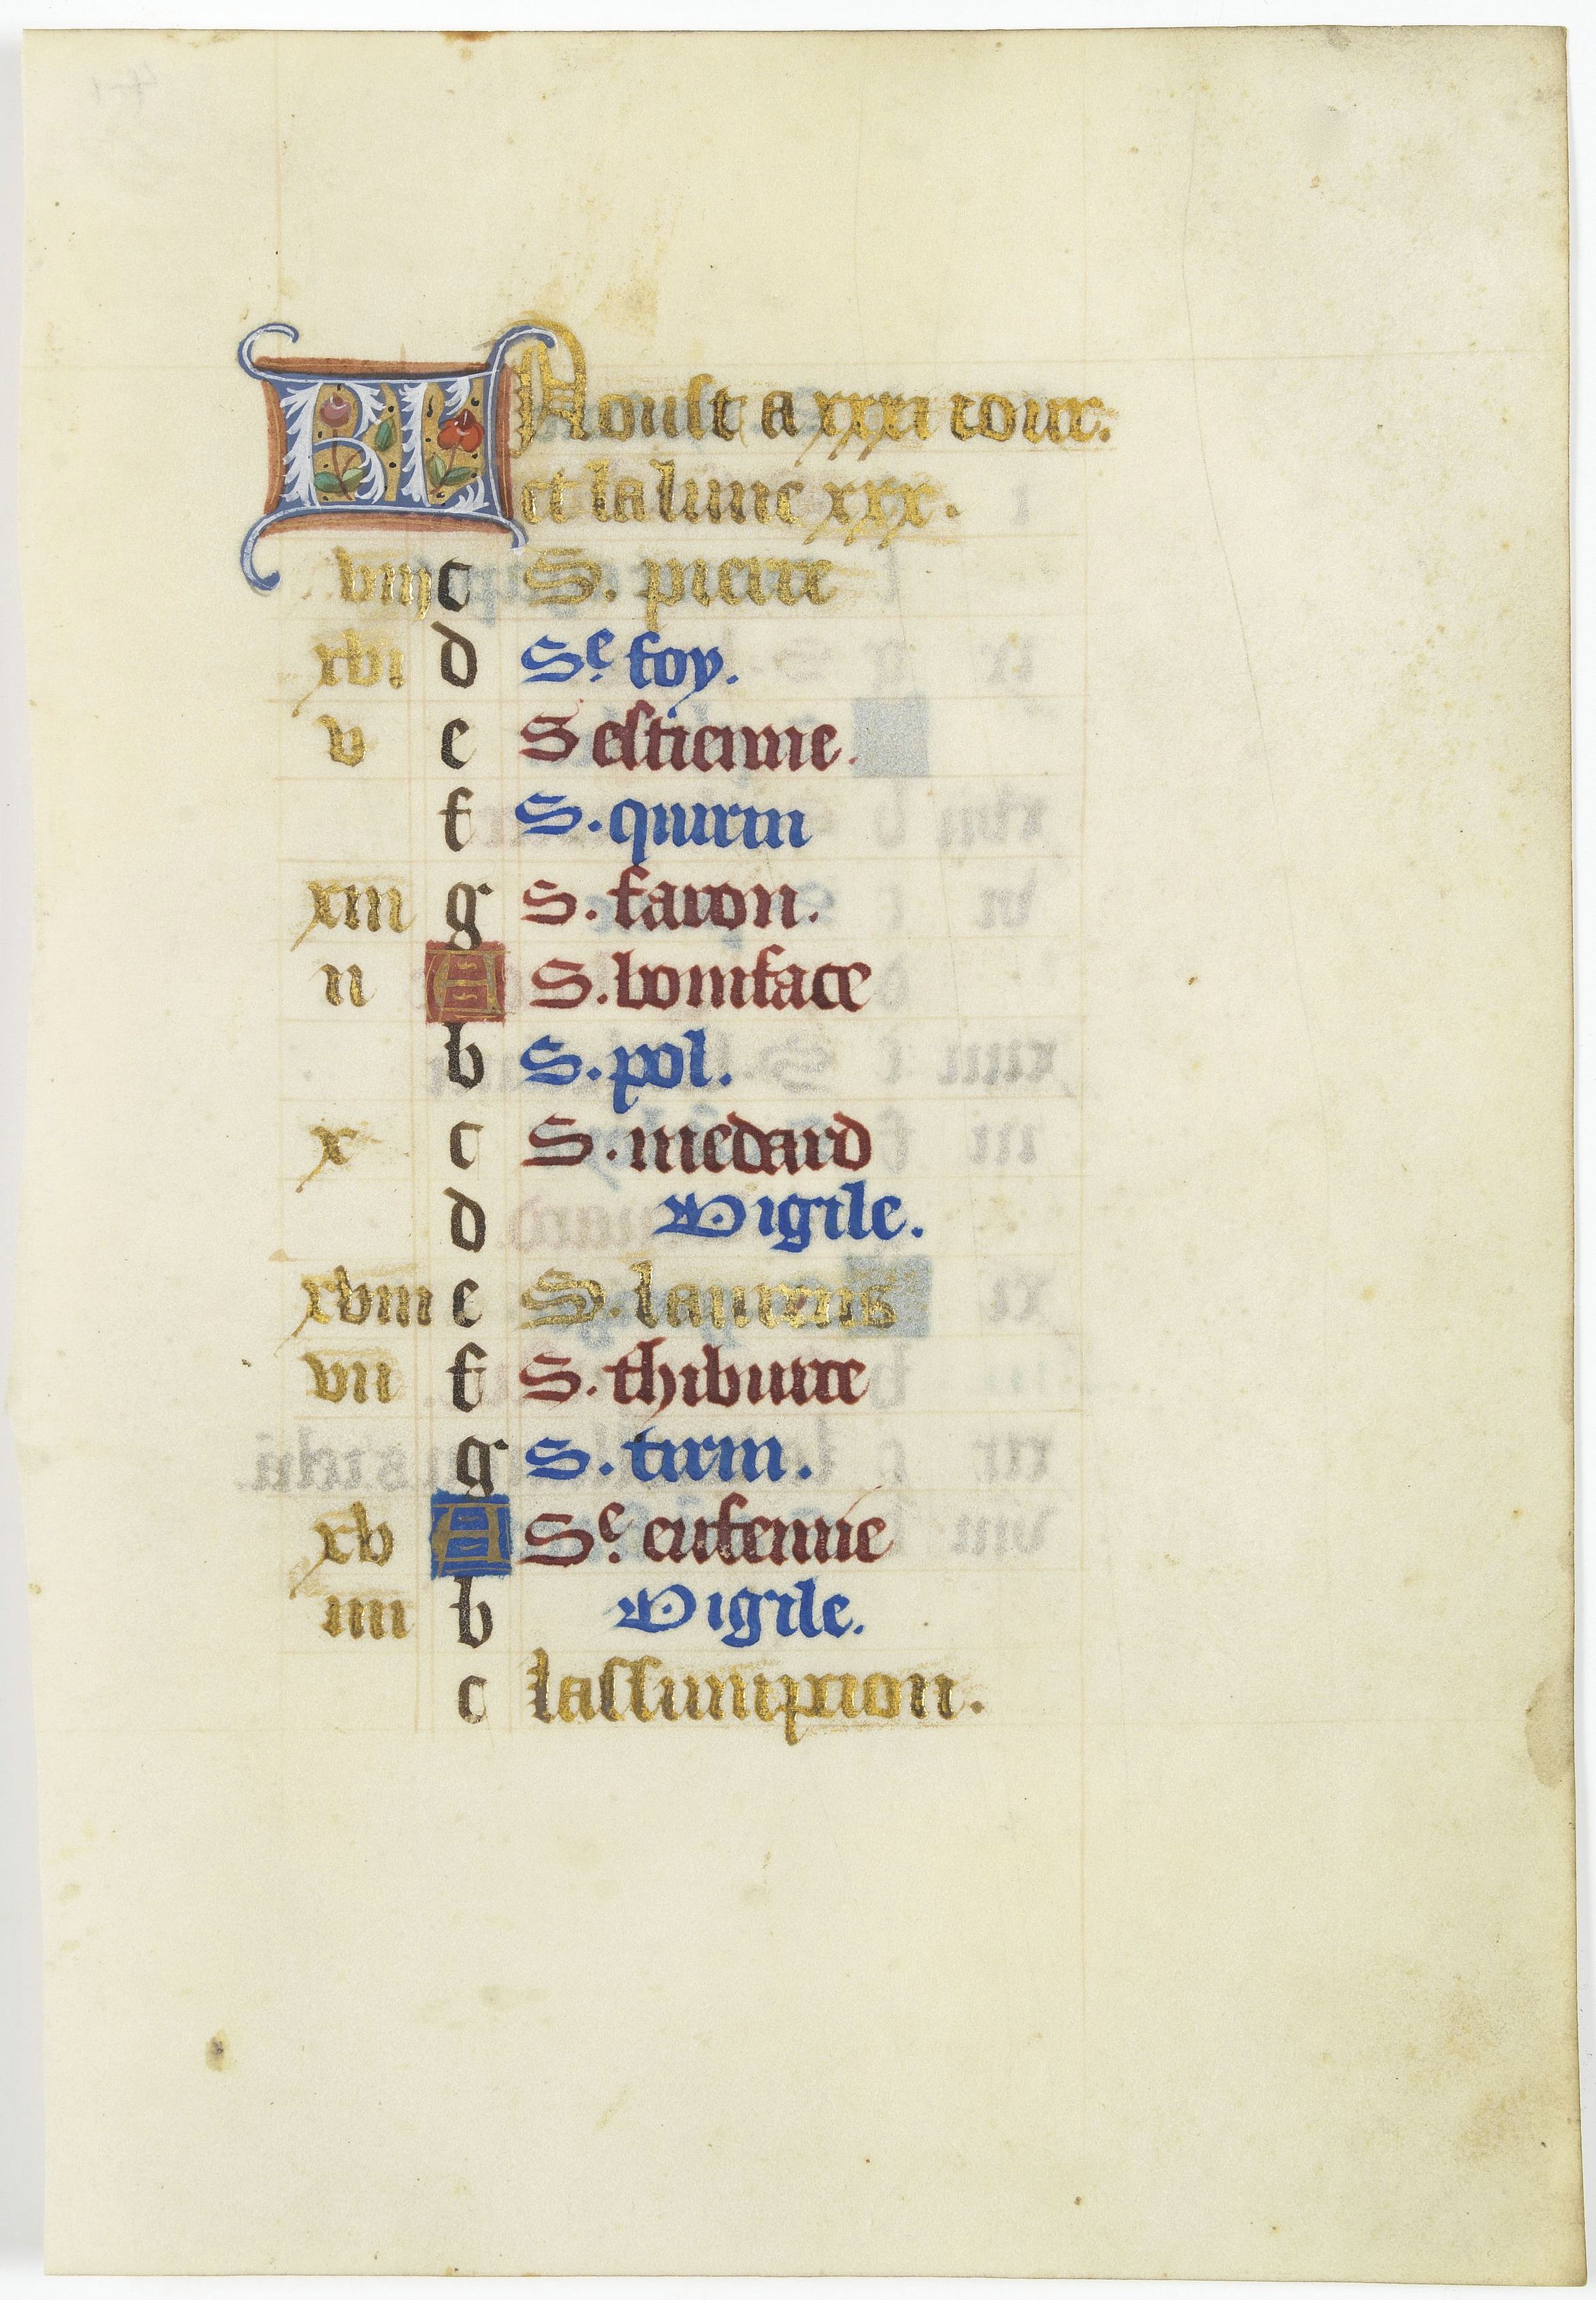 KL Aoust a xxxi iour.
et la lune xxx.
viij c S. pierre
xvi d Se. foy.
v e S estienne.
f S. quirin
xiii g S. faron.
ii A S. boniface
b S. pol.
x c S. medard
d Vigile.
xviii e S. laurens
vii f S. thiburce
g S. turin.
xv A Se. eufemie
iiii b Vigile.
c lassumpcion.